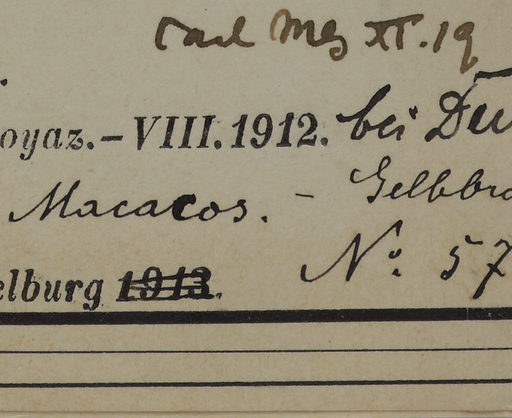 Carl Mez XI.19
oyaz.–VIII.1912. bei Deu
Macacos. – Gelbbra
elburg 1913.
Nº 57